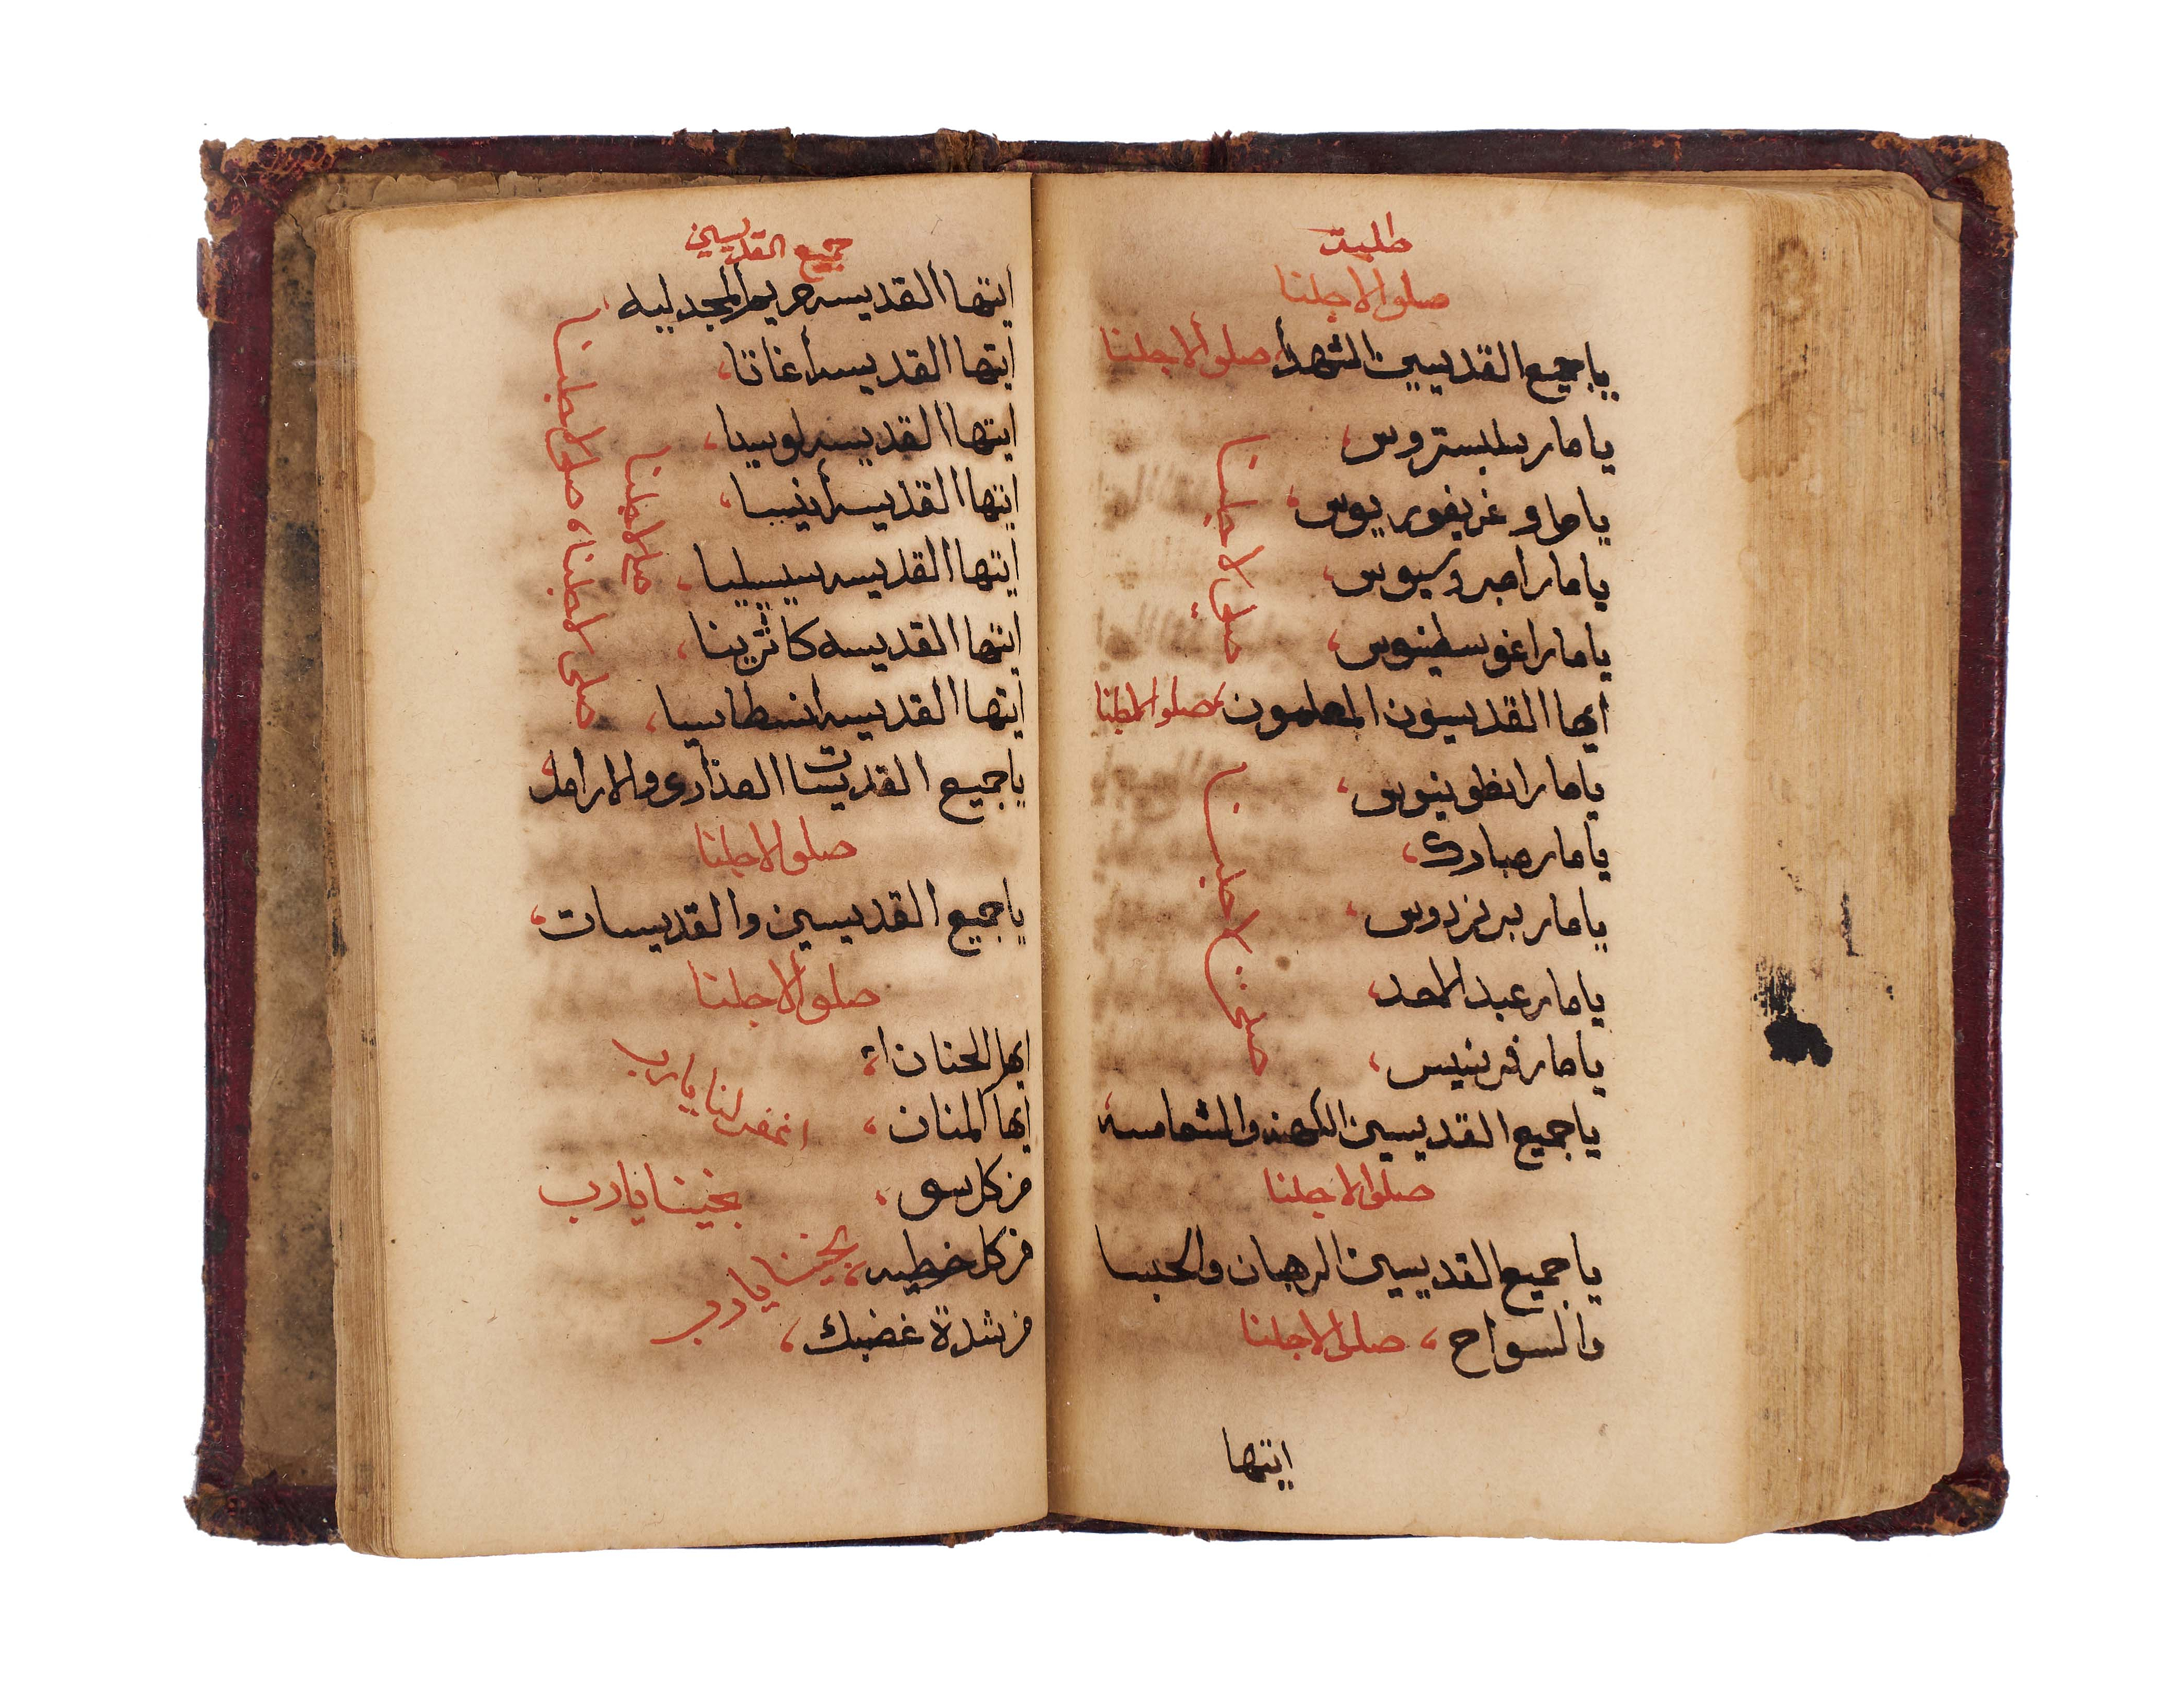 طلبة
صلوا لاجلنا
ياجميع القديسين الشهدأ، صلوا لاجلنا
يا مار سلبستروس،
يا مار غريغوريوس،
يا مار امبروسيوس،
يا مار اغوسطينوس،
صلوا لاجلنا
أيها القديسون المعلمون، صلوا لاجلنا
يا مار انطونيوس،
يا مار مبارك،
يا مار برنردوس،
يا مار عبد الاحد،
يا مار فرنسيس،
صلوا لاجلنا
ياجميع القديسين الكهنه والشمامسه،
صلوا لاجلنا
ياجميع القديسين الرهبان والحبسا
والسواح، صلوا لاجلنا
ايتها
جميع القديسين
ايتها القديسه مريم المجدليه،
ايتها القديسه أغاتا،
ايتها القديسه لوسيا،
ايتها القديسه أنيسا،
ايتها القديسه سيسيليا،
ايتها القديسه كاثرينا،
ايتها القديسه أنسطاسيا،
صلوا لاجلنا
صلوا لاجلنا، صلوا لاجلنا
ياجميع القديسات العذارى والارامل،
صلوا لاجلنا
ياجميع القديسين والقديسات،
صلوا لاجلنا
ايها الحنان
أيها المنان، اغفر لنا يارب
من كل سو، نجينا يارب
من كل خطيه، نجينا يارب
من شدة غضبك،